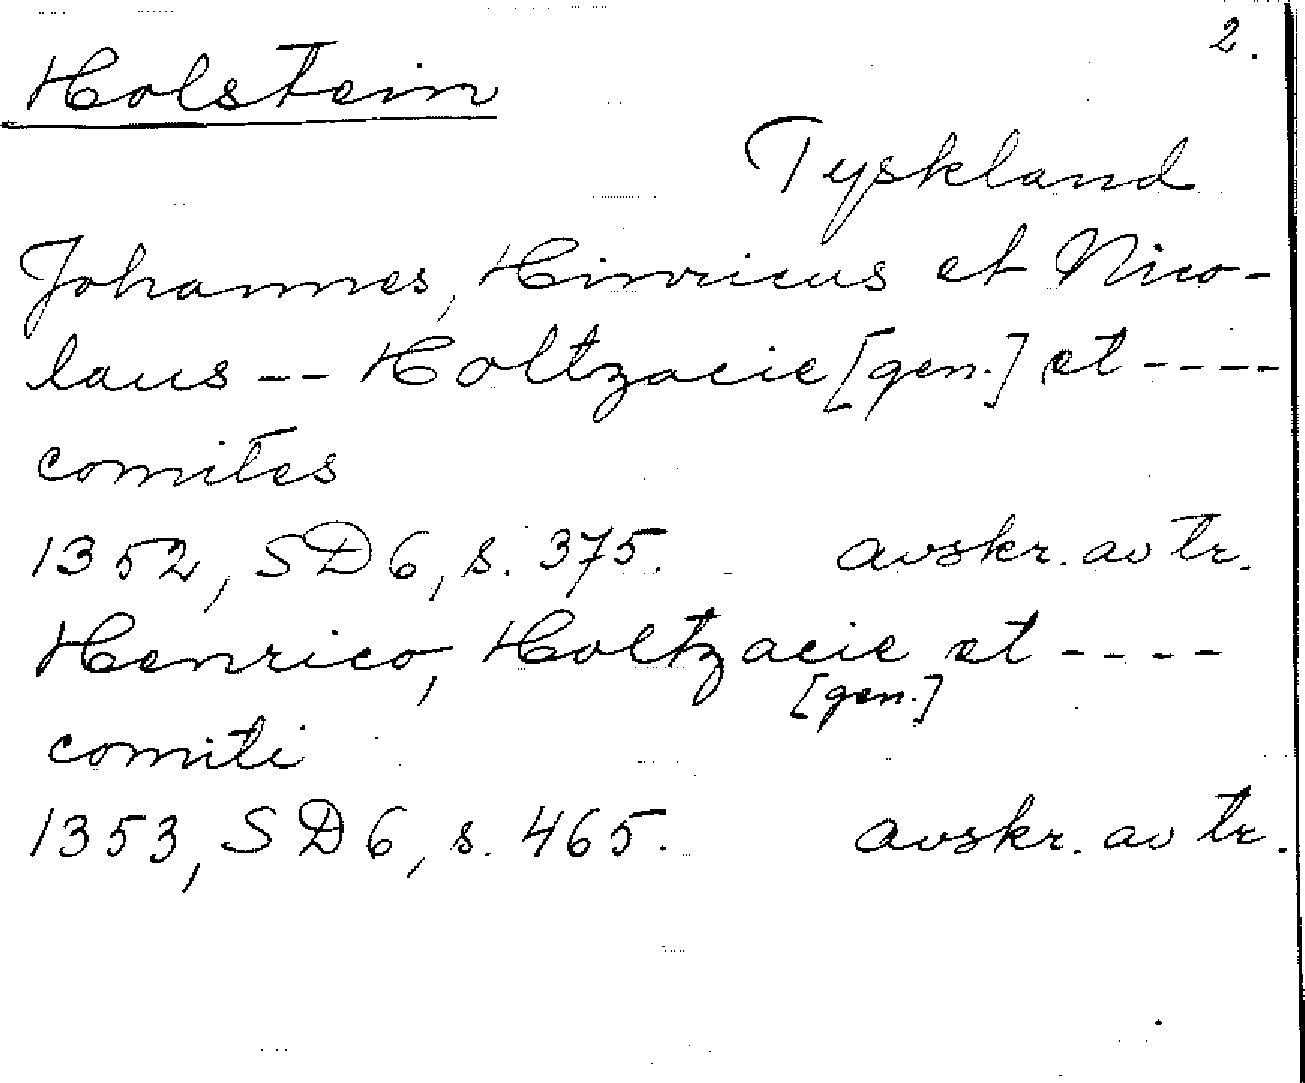 2.
Holstein
Tyskland
Johannes, Hinricus et Nico-
laus -- Holtzacie [gen.] et ----
comites
1352, SD 6, s. 375. avskr. av tr.
Henrico, Holtzacie et ----
[gen.]
comiti
1353, SD 6, s. 465. avskr. av tr.